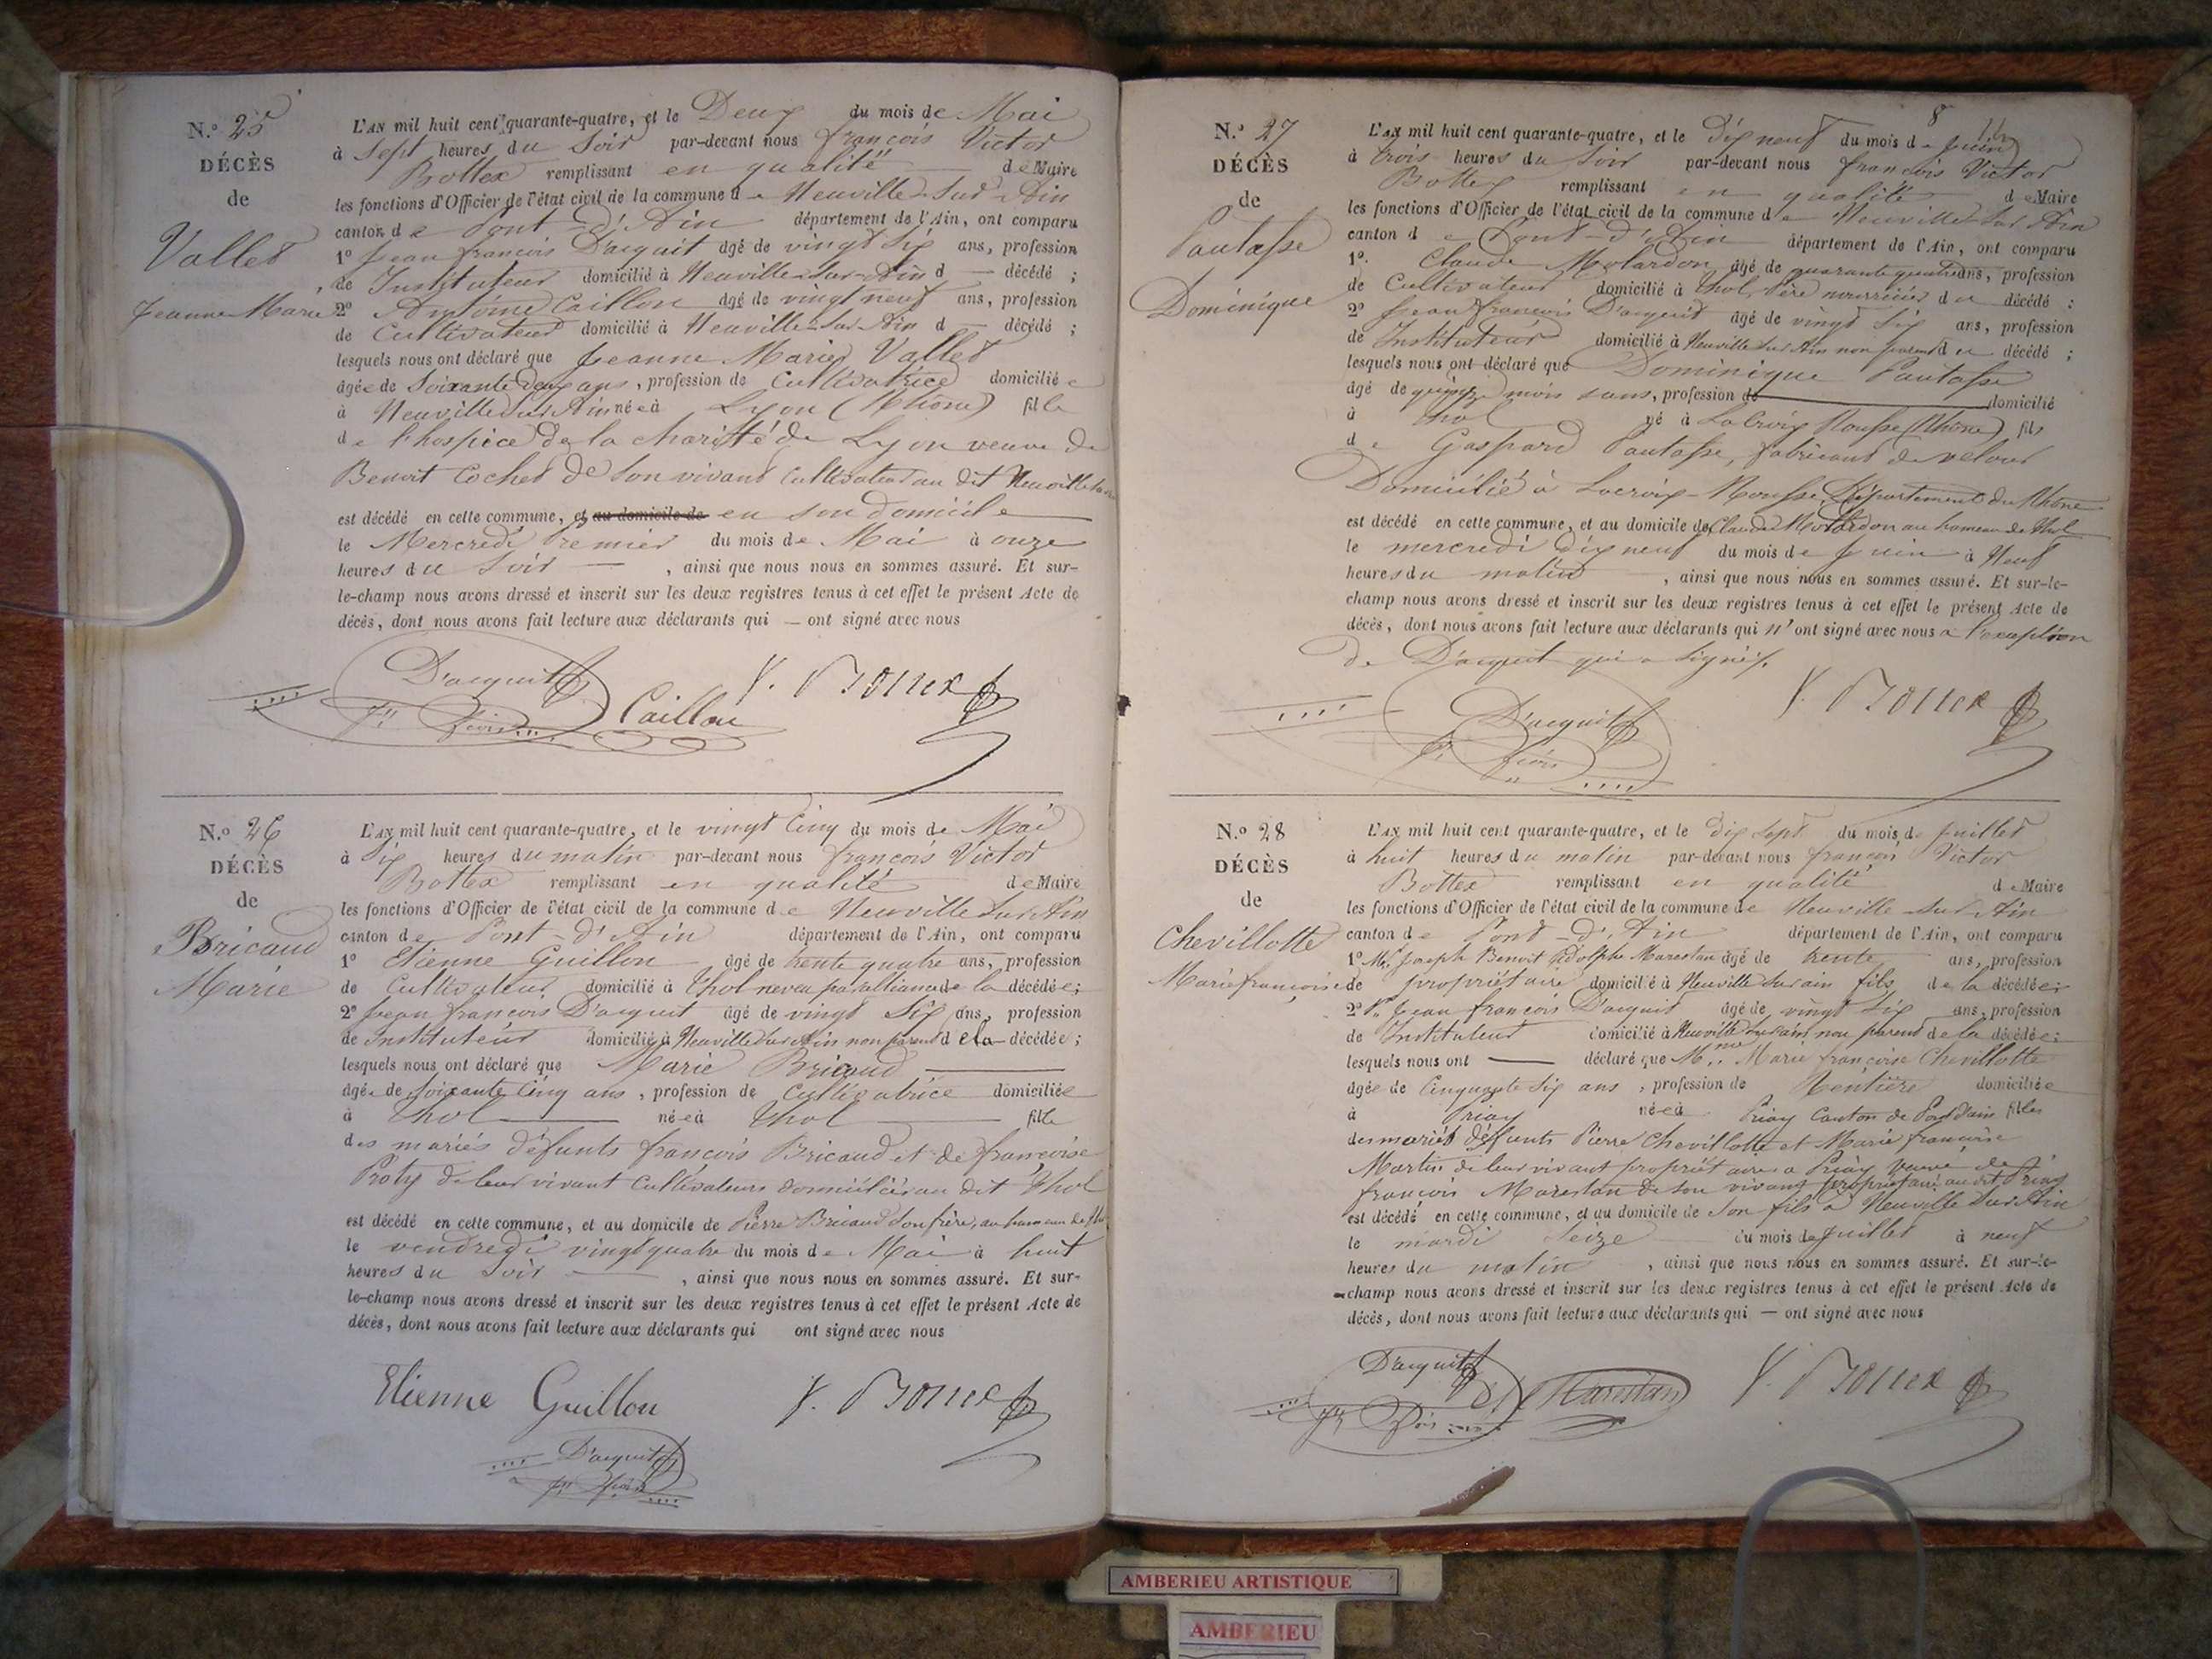 N.o 25
DÉCÈS
de
Vallet
Jeanne Marie
L'AN mil huit cent quarante-quatre, et le Deux du mois de Mai
à Sept heures du Soir par-devant nous françois Victor
Bottex remplissant en qualité de Maire
les fonctions d'Officier de l'état civil de la commune de Neuville Sur Ain
canton de Pont-d'Ain département de l'Ain, ont comparu
1º Jean françois D'acquit âgé de vingt Six ans, profession
de Instituteur domicilié à Neuville-Sur-Ain d — décédé ;
2º Antoine Caillon âgé de vingt neuf ans, profession
de Cultivateur domicilié à Neuville-Sur Ain d — décédé ;
lesquels nous ont déclaré que Jeanne Marie Vallet
âgée de Soixante Deux ans, profession de Cultivatrice domiciliée
à Neuville Sur Ain née à Lyon (Rhône) fille
de l'hospice de la charité de Lyon veuve de
Benoit Cochet de Son vivant Cultivateur au dit Neuville
est décédé en cette commune, et au domicile de en son domicile
le Mercredi Premier du mois de Mai à onze
heures du Soir — , ainsi que nous nous en sommes assuré. Et sur-
le-champ nous avons dressé et inscrit sur les deux registres tenus à cet effet le présent Acte de
décès, dont nous avons fait lecture aux déclarants qui — ont signé avec nous
D'acquit Caillon V. Bottex
N.o 26
DÉCÈS
de
Bricaud
Marie
L'AN mil huit cent quarante-quatre, et le vingt Cinq du mois de Mai
à Six heures du matin par-devant nous françois Victor
Bottex remplissant en qualité de Maire
les fonctions d'Officier de l'état civil de la commune de Neuville Sur Ain
canton de Pont-d'Ain département de l'Ain, ont comparu
1º Etienne Guillon âgé de trente quatre ans, profession
de Cultivateur domicilié à Thol neveu par alliance de la décédée;
2º Jean françois D'acquit âgé de vingt Six ans, profession
de Instituteur domicilié à Neuville Sur Ain non parent d e la décédée ;
lesquels nous ont déclaré que Marie Bricaud
âgée de Soixante Cinq ans, profession de Cultivatrice domiciliée
à Thol née à Thol fille
des mariés défunts françois Bricaud et de françoise
Proty de leur vivant Cultivateurs domiciliés au dit Thol
est décédé en cette commune, et au domicile de Pierre Bricaud Son frère, au hameau de Thol
le vendredi vingt quatre du mois de Mai à huit
heures du Soir — , ainsi que nous nous en sommes assuré. Et sur-
le-champ nous avons dressé et inscrit sur les deux registres tenus à cet effet le présent Acte de
décès, dont nous avons fait lecture aux déclarants qui ont signé avec nous
Etienne Guillon V. Bottex
D'acquit
8
N.o 27
DÉCÈS
de
Pautasse
Dominique
L'AN mil huit cent quarante-quatre, et le Dix neuf du mois de Juin
à trois heures du Soir par-devant nous françois Victor
Bottex remplissant en qualité de Maire
les fonctions d'Officier de l'état civil de la commune de Neuville Sur Ain
canton de Pont-d'Ain département de l'Ain, ont comparu
1º Claude Molardon âgé de quarante quatre ans, profession
de Cultivateur domicilié à Thol, Père nourricier du décédé ;
2º Jean françois D'acquit âgé de vingt Six ans, profession
de Instituteur domicilié à Neuville Sur Ain non parent du décédé ;
lesquels nous ont déclaré que Dominique Pautasse
âgé de quinze mois sans, profession de domicilié
à Thol né à La Croix Rousse (Rhône) fils
de Gaspard Pautasse, fabricant de velour
Domicilié à Lacroix-Rousse, Département du Rhône
est décédé en cette commune, et au domicile de Claude Molardon au hameau de Thol
le mercredi dix neuf du mois de Juin à Neuf
heures du matin , ainsi que nous nous en sommes assuré. Et sur-le-
champ nous avons dressé et inscrit sur les deux registres tenus à cet effet le présent Acte de
décès, dont nous avons fait lecture aux déclarants qui n'ont signé avec nous a l'exception
de D'acquit qui a Signé.
D'acquit V. Bottex
N.o 28
DÉCÈS
de
Chevillotte
Marie françoise
L'AN mil huit cent quarante-quatre, et le dix Sept du mois de Juillet
à huit heures du matin par-devant nous françois Victor
Bottex remplissant en qualité de Maire
les fonctions d'Officier de l'état civil de la commune de Neuville Sur Ain
canton de Pont-d'Ain département de l'Ain, ont comparu
1º Mr. Joseph Benoit Adolphe Marestan âgé de trente ans, profession
de propriétaire domicilié à Neuville Sur ain fils de la décédée;
2º Jean françois D'acquit âgé de vingt Six ans, profession
de Instituteur domicilié à Neuville Sur ain, non parent de la décédée;
lesquels nous ont — déclaré que Mme Marie françoise Chevillotte
âgée de Cinquante Six ans, profession de Rentière domiciliée
à Priay née à Priay Canton de Pont d'ain fille
des mariés défunts Pierre Chevillotte et Marie françoise
Martin de leur vivant propriétaires a Priay veuve de
françois Marestan de son vivant propriétaire au dit Priay
est décédé en cette commune, et au domicile de Son fils à Neuville Sur Ain
le mardi Seize du mois de Juillet à neuf
heures du matin , ainsi que nous nous en sommes assuré. Et sur-le-
champ nous avons dressé et inscrit sur les deux registres tenus à cet effet le présent Acte de
décès, dont nous avons fait lecture aux déclarants qui — ont signé avec nous
D'acquit Marestan V. Bottex
AMBERIEU ARTISTIQUE
AMBERIEU